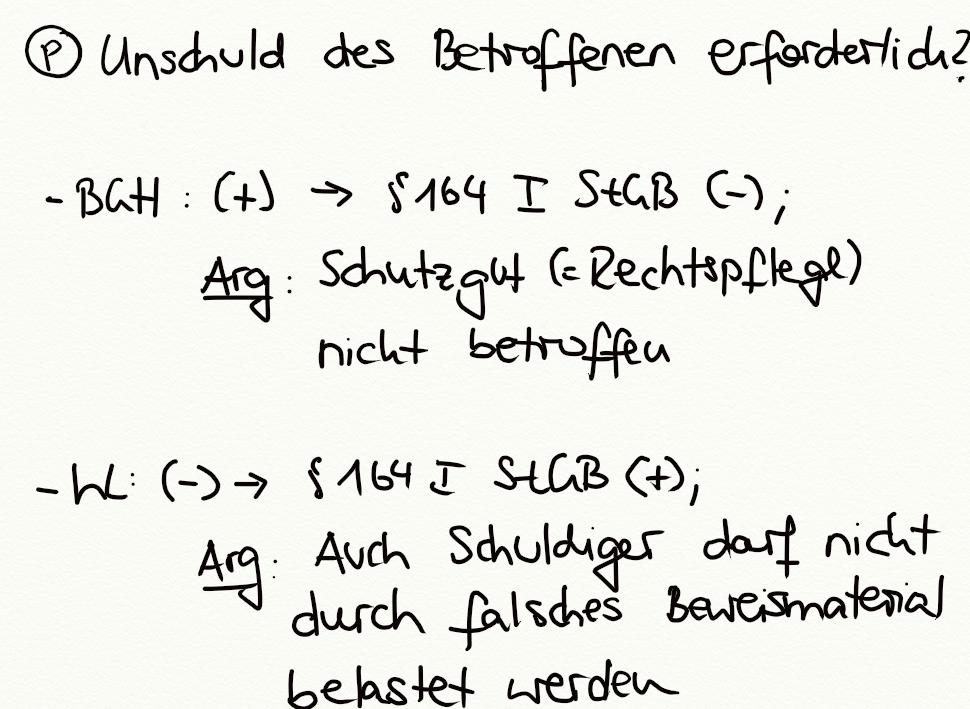 Ⓟ Unschuld des Betroffenen erforderlich?
- BGH: (+) → § 164 I StGB (-);
Arg: Schutzgut (= Rechtspflege)
nicht betroffen
- hL: (-) → § 164 I StGB (+);
Arg: Auch Schuldiger darf nicht
durch falsches Beweismaterial
belastet werden